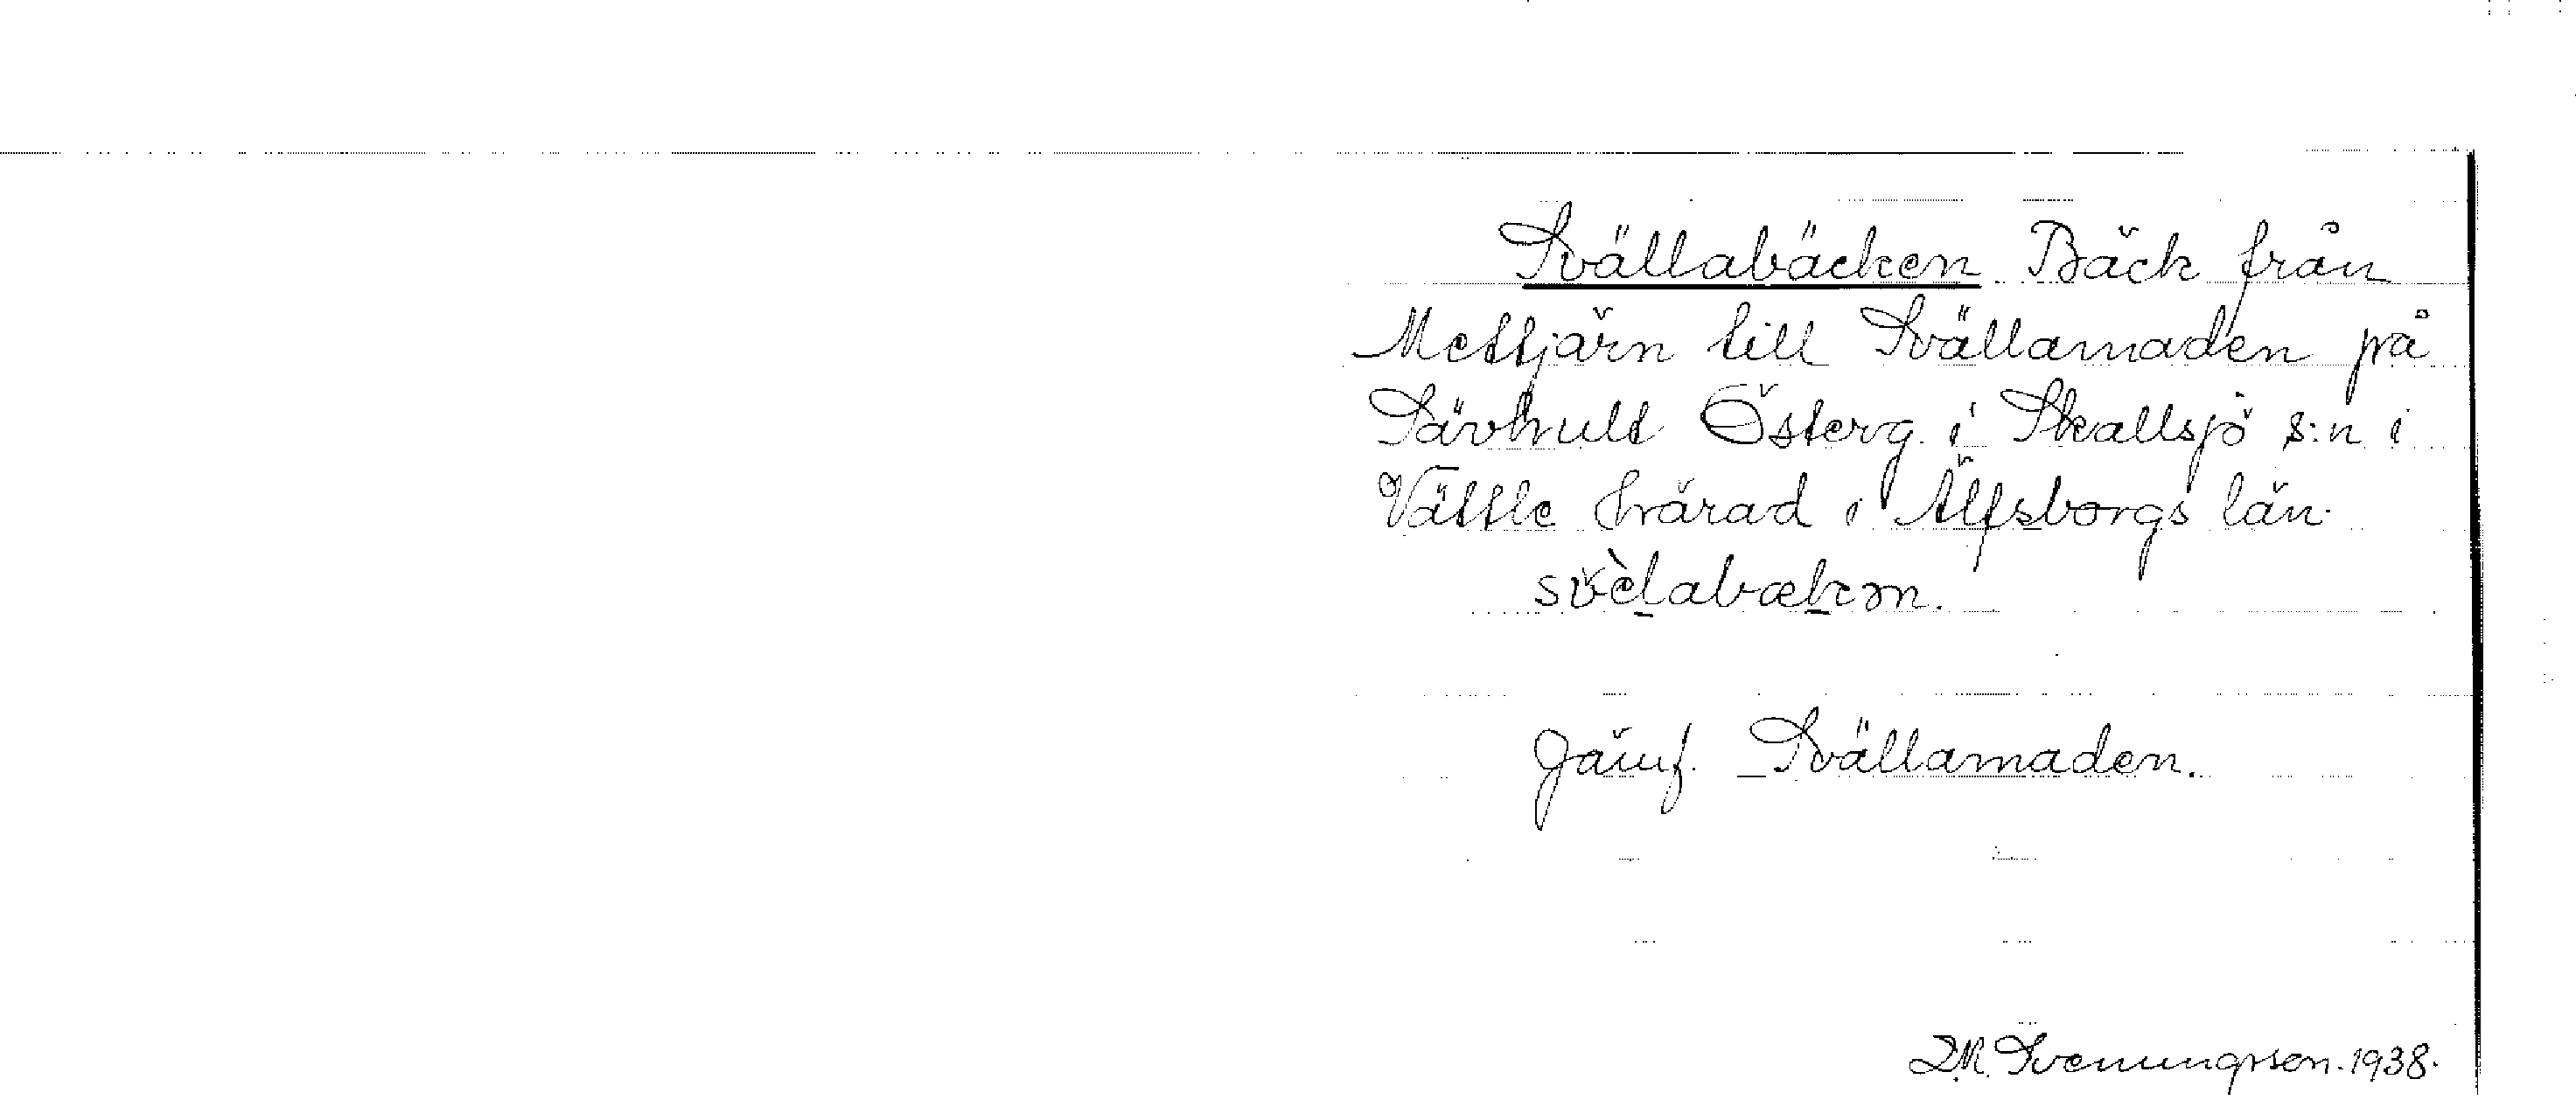 Svällabäcken Bäck från
Mettjärn till Svällamaden på
Sävhult Österg. i Skallsjö s:n i
Vättle härad i Älfsborgs län.
svèlabækɘn.
Jämf. Svällamaden.
D.M. Svenungsson. 1938.